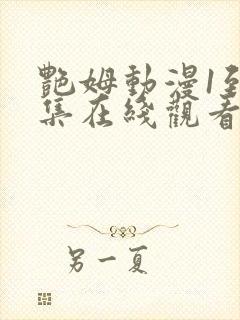 艷姆動漫1至
集在綫觀看
另一夏